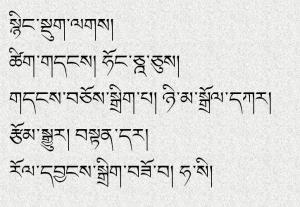 སྙིང་སྡུག་ལགས།
ཚིག་གདངས། ཧོང་ཅཱ་ཅུས།
གདངས་བཅོས་སྒྲིག་པ། ཉི་མ་སྒྲོལ་དཀར།
རྩོམ་སྒྱུར། བསྟན་དར།
རོལ་དབྱངས་སྒྲིག་བཟོ་བ། ཧ་སི།